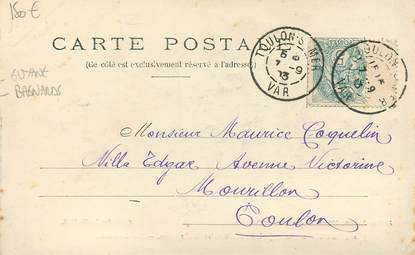 150€
CARTE POSTA
(Ce côté est exclusivement réservé à l'adresse)
GUYANE
BAGNARDS
TOULON-S-MER
VAR
Monsieur Maurice Coquelin
Villa Edgar Avenue Victorine
Mourillon
Toulon